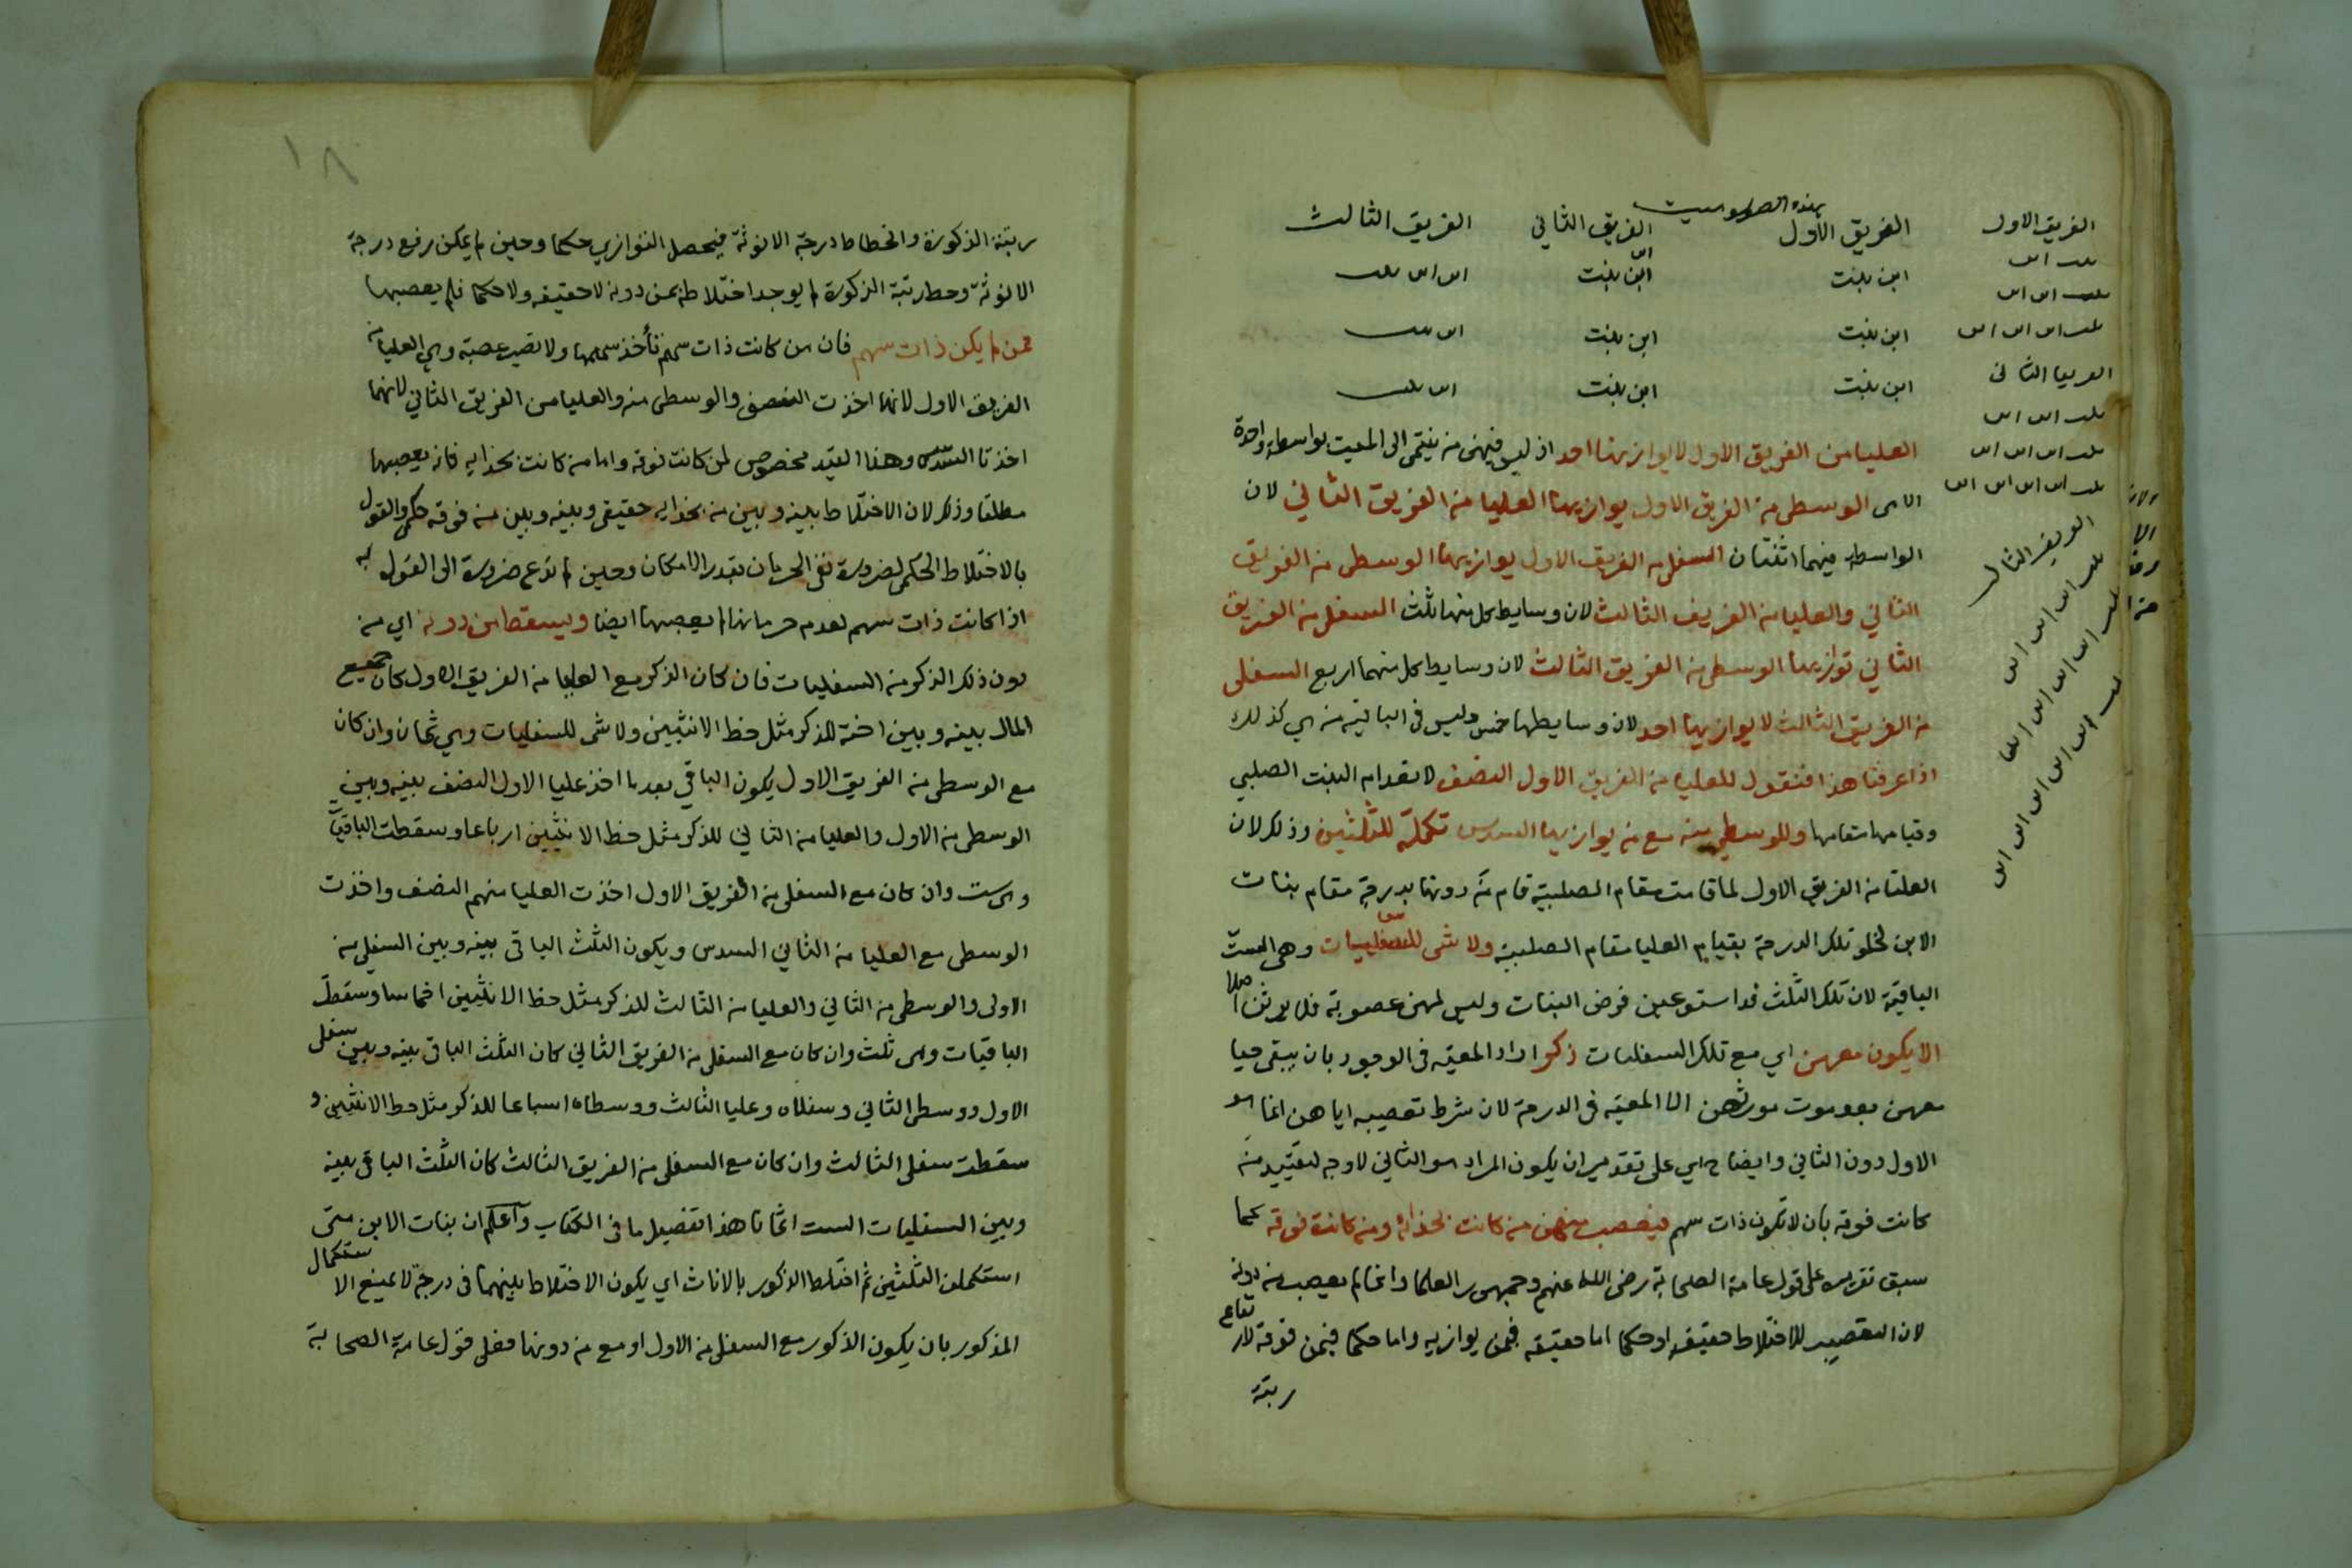 بهذه الصورة
الفريق الاول الفريق الثاني الفريق الثالث
ابن بنت ابن بنت ابن ابن بنت
ابن بنت ابن بنت ابن بنت
ابن بنت ابن بنت ابن بنت
العليا من الفريق الاول لا يوازيها احد اذ ليس فيهن من ينتمى الى الميت بواسطة واحدة
الا هى الوسطى من الفريق الاول يوازيها العليا من الفريق الثاني لان
الواسطة فيهما اثنتان السفلى من الفريق الاول يوازيها الوسطى من الفريق
الثاني والعليا من الفريق الثالث لان وسايط كل منها ثلث السفلى من الفريق
الثاني توازيها الوسطى من الفريق الثالث لان وسايط كل منهما اربع السفلى
من الفريق الثالث لا يوازيها احد لان وسايطها خمس وليس فى الباقية من هي كذلك
اذا عرفت هذا فنقول للعليا من الفريق الاول النصف لانعدام البنت الصلبي
وقيامها مقامها وللوسطى منه مع من يوازيها السدس تكملة للثلثين وذلك لان
العليا من الفريق الاول لما قامت مقام الصلبية قام من دونها بدرجة مقام بنات
الابن لخلو تلك الدرجة بقيام العليا مقام الصلبية ولا شى للسفليات وهى الست
الباقية لان تلك الثلث قد استوعبن فرض البنات وليس لهن عصوبة فلا يرثن اصلا
الا يكون معهن اي مع تلك السفليات ذكر اراد المعية فى الوجود بان يبقى حيا
معهن بعد موت مورثهن لا المعية فى الدرجة لان شرط تعصيبه اياهن انما هو
الاول دون الثاني وايضا ح اي على تقدير ان يكون المراد هو الثاني لا وجه لتقييد من
كانت فوقه بان لا تكون ذات سهم فيعصب منهن من كانت بحذائه ومن كانت فوقه كما
سبق تقريره على قول عامة الصحابة رضى الله عنهم وجمهور العلما وانما لم يعصب من دونه
لان التعصيب للاختلاط حقيقة او حكما اما حقيقة فيمن يوازيه واما حكما فيمن فوقه لارتفاع
رتبة
الفريق الاول
بنت ابن
بنت ابن ابن
بنت ابن ابن ابن
الفريق الثانى
بنت ابن ابن
بنت ابن ابن ابن
بنت ابن ابن ابن ابن
الفريق الثالث
بنت ابن ابن ابن
بنت ابن ابن ابن ابن
بنت ابن ابن ابن ابن ابن
١٨
رتبة الذكورة وانحطاط درجة الانوثة فيحصل التوازي حكما وحين لم يمكن رفع درجة
الانوثة وحط رتبة الذكورة لم يوجد اختلاطه بمن دونه لا حقيقة ولا حكما فلم يعصبها
ممن لم يكن ذات سهم فان من كانت ذات سهم تأخذ سهمها ولا تصير عصبة وهي العليا من
الفريق الاول لانها اخذت النصف والوسطى منه والعليا من الفريق الثاني لانهما
اخذتا السدس وهذا القيد مخصوص لمن كانت فوقه واما من كانت بحذايه فانه يعصبها
مطلقا وذلك لان الاختلاط بينه وبين من بحذايه حقيقى وبينه وبين من فوقه حكمى والقول
بالاختلاط الحكمى لضرورة نفى الحرمان بقدر الامكان وحين لم تدع ضرورة الى القول به
اذا كانت ذات سهم لعدم حرمانها لم يعصبها ايضا ويسقط من دونه اي من
دون ذلك الذكر من السفليات فان كان الذكر مع العليا من الفريق الاول كان جميع
المال بينه وبين اخته للذكر مثل حظ الانثيين ولا شى للسفليات وهي ثمان وان كان
مع الوسطى من الفريق الاول يكون الباقي بعد ما اخذ عليا الاول النصف بينه وبين
الوسطى من الاول والعليا من الثاني للذكر مثل حظ الانثيين ارباعا وسقطت الباقيات
وهى ست وان كان مع السفلى من الفريق الاول اخذت العليا منهم النصف واخذت
الوسطى مع العليا من الثاني السدس ويكون الثلث الباقى بينه وبين السفلى من
الاولى والوسطى من الثاني والعليا من الثالث للذكر مثل حظ الانثيين اخماسا وسقط
الباقيات وهى ثلث وان كان مع السفلى من الفريق الثاني كان الثلث الباقى بينه وبين سفلى
الاول ووسطى الثاني وسفلاه وعليا الثالث ووسطاه اسباعا للذكر مثل حظ الانثيين و
سقطت سفلى الثالث وان كان مع السفلى من الفريق الثالث كان الثلث الباقى بينه
وبين السفليات الست اثمانا هذا تفصيل ما فى الكتاب واعلم ان بنات الابن متى
استكملن الثلثين ثم اختلط الذكور بالاناث اي يكون الاختلاط بينهما فى درجة لا يمنع الاستكمال
المذكور بان يكون الذكور مع السفلى من الاول او مع من دونها فعلى قول عامة الصحابة